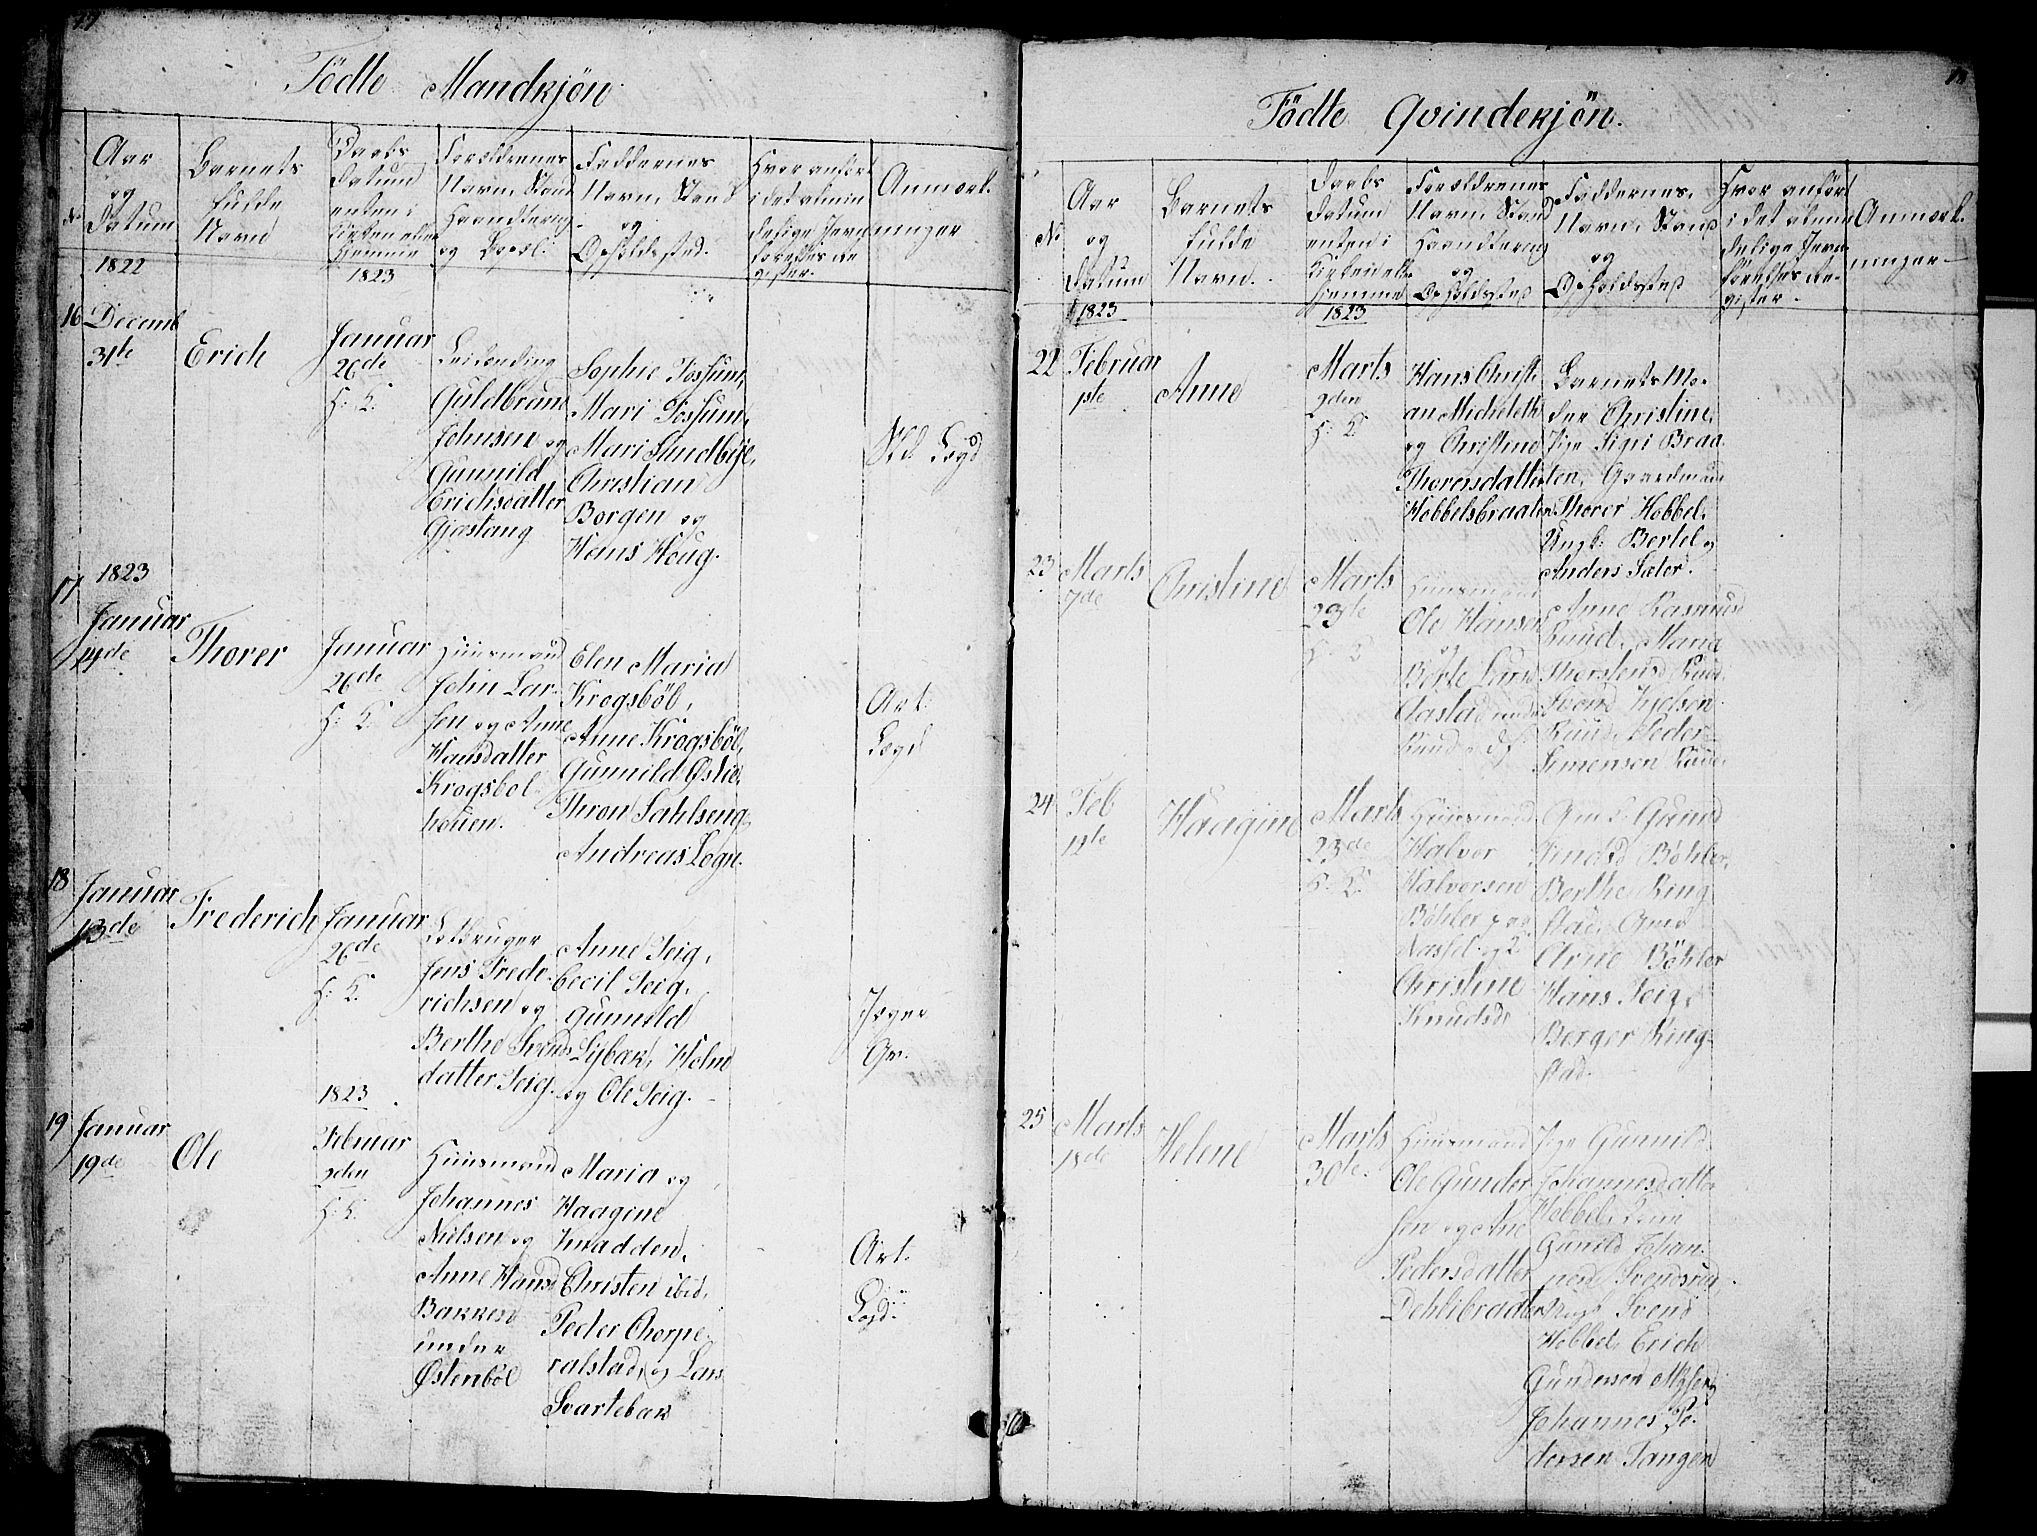 Födte Mandkjön
No
Aar
og
Datum
Barnets
fulde
Navn
Daabs
Datum
enten i
Kirken eller
hjemme
Forældrenes
Navn, Stand
Haandtering
og Bopæl.
Faddernes
Navn, Stand
og
Opholdsted.
Hvor anført
i det almin
delige Jevn
førelses Re
gister.
Anmærk-
ninger
1822
1823
16
Decemb
31te
Erich
Januar
26de
H: K.
Guldbrand
Johnsen og
Gunnild
Erichsdatter
Gjæstang
Sophie Fossum,
Mari Fossum,
Mari Sundbye,
Christian
Borgen og
Hans Houg.
Lægd
17
1823
Januar
14de
Thorer
Januar
26de
H: K.
Huusmand
John Lar-
sen og Anne
Hansdatter
Krogsbøl-
houen.
Elen Maria
Krogsböl,
Anne Krogsböl,
Gunnild Østlie,
Thron Sahlseng,
Andreas Logn.
Art:
Lægd
18
Januar
13de
Frederich
Januar
26de
H: K.
Jens Frede-
richsen og
Berthe Svends
datter Teig.
Anne Teig,
Cecil Teig,
Gunnild
Lybak, Holm
og Ole Teig.
Jæger
1823
19
Januar
19de
Ole
Februar
2den
H: K.
Huusmand
Johannes
Nielsen og
Anne Hansd
Bakken
under
Østenböl
Maria og
Haagine
Christen ibid,
Peder Chorpe-
ralstad, og Lars
Svartebak
Art:
Lægd.
Födte Qvindekjön.
No
Aar
og
Datum
Barnets
fulde
Navn.
Daabs
Datum
enten i
Kirken eller
hjemme
Forældrenes
Navn, Stand
Haandtering
og
Opholdsted
Faddernes,
Navn, Stand
og
Opholdsted
Hvor anført
i det almin
delige Jevn
førelses Re-
gister.
Anmærk-
ninger
1823
1823
22
Februar
1ste
Anne
Marts
2den
H: K
Hans Christi
an Michelets
og Christine
Thorersdatter
Hobbelsbraaten
Barnets Mo-
der Christine,
Pige Sigri Braa
ten, Gaardmand
Thorer Hobbel,
Ungk: Bertel og
Anders Sæter.
23
Marts
7de
Christine
Marts
23de
Huusmand
Ole Hansen
og
Berte Lars
Anne Rasmusd
Ruud, Maria
Thorstensd Ruud,
Svend Kjelsen
Ruud, Peder
Simensen
24
Feb
12te
Haagine
Marts
23de
H: K.
Huusmand
Halvor
Halvorsen
Bøhler
Christine
Knudsd
Bøhler,
Berthe Ring
stad,
Arne Böhler
Hans Teig,
Berger Ring-
stad.
25
Marts
18de
Helene
Marts
30te.
Huusmand
Ole Gunder
sen og Ane
Pedersdatter
Dehlibraaten
Pige Gunnild
Johannesdatter
Hobbel, Kone
Gunild Johan-
Svend
Hobbel, Erich
Gundersen
Johannes Pe-
dersen Tangen